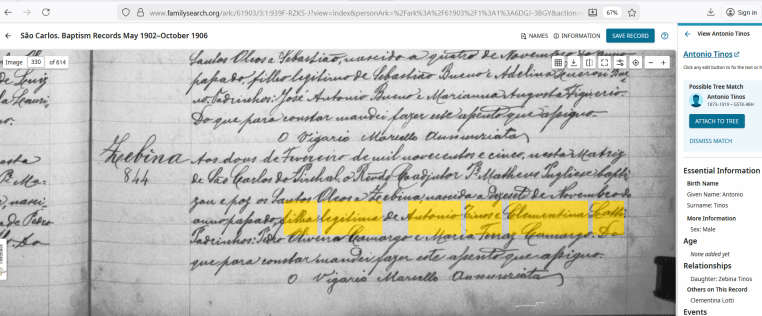 www.familysearch.org/ark:/61903/3:1:939F-RZKS-J?view=index&personArk=%2Fark%3A%2F61903%2F1%3A1%3A6DGJ-38GY&action=
67%
Sign in
São Carlos. Baptism Records May 1902–October 1906
NAMES
INFORMATION
SAVE RECORD
View Antonio Tinos
Image 330 of 614
Santos Oleos a Sebastião, nascido a quatro de Novembro do anno
papado, filho legitimo de Sebastião Bueno e Adelina
Padrinhos: José Antonio Bueno e Marianna Augusta
Do que para constar mandei fazer este apento que apigno.
O Vigario Marcello Annunziata
Zebina
844
Aos dous de Fevereiro de mil novecentos e cinco, nesta Matriz
de São Carlos do Pinhal, o Rvdo Coadjutor Pe Matheus Pugliese bapti
zou e poz os Santos Oleos a Zebina, nascida a de Novembro do
anno papado, filha legitima de Antonio Tinos e Clementina Lotti
Padrinhos: Pedro Oliveira Camargo e Maria Camargo. Do
que para constar mandei fazer este apento que apigno.
O Vigario Marcello Annunziata
Antonio Tinos
Click any edit button to fix the text or
Possible Tree Match
Antonio Tinos
ATTACH TO TREE
DISMISS MATCH
Essential Information
Birth Name
Given Name: Antonio
Surname: Tinos
More Information
Sex: Male
Age
None added yet
Relationships
Daughter: Zebina Tinos
Others on This Record
Clementina Lotti
Events